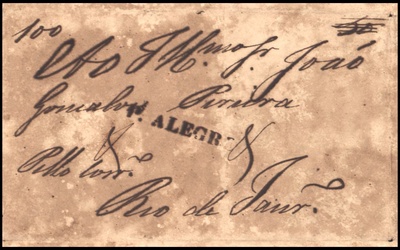 100
Ao Illmo Sr João
Gonçalves Pereira
P. ALEGRE
Pello Corr.º
Rio de Janr.º